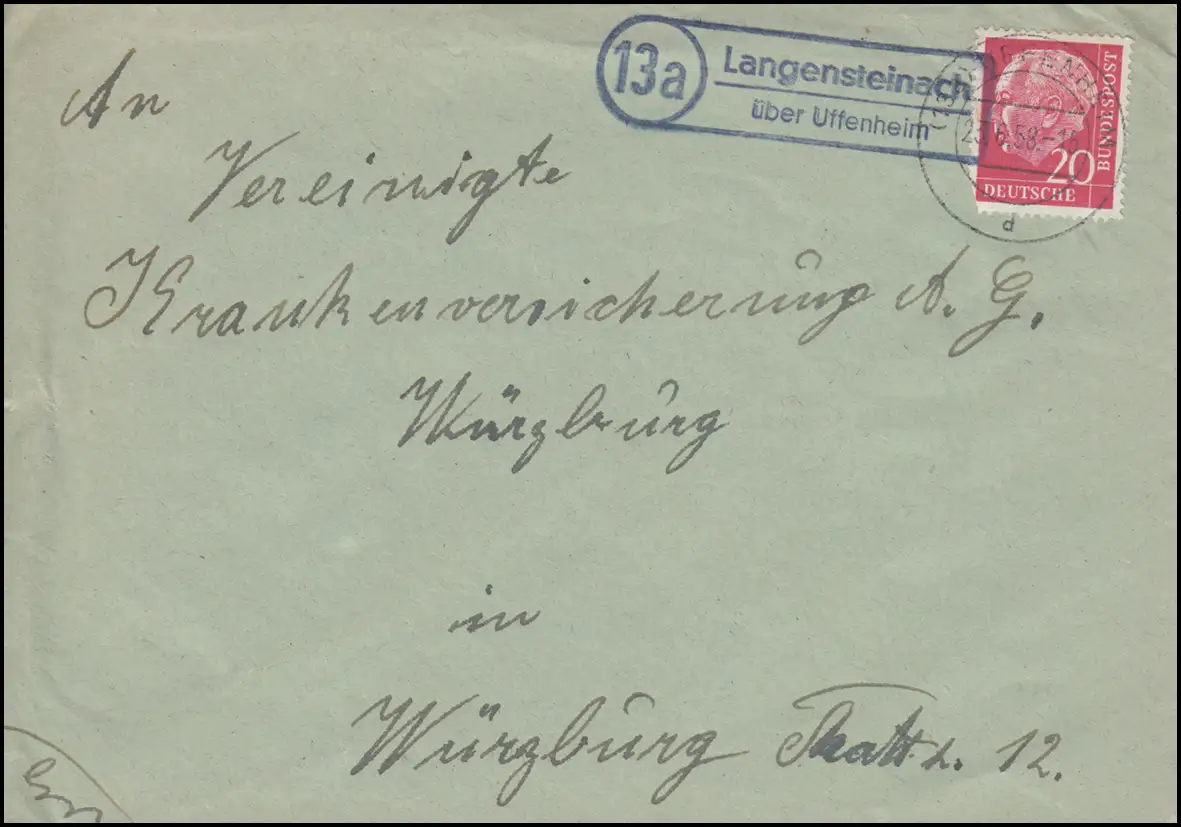 13a
Langensteinach
über Uffenheim
20
DEUTSCHE
BUNDESPOST
d
An
Vereinigte
Krankenversicherung A. G.
Würzburg
in
Würzburg 12.